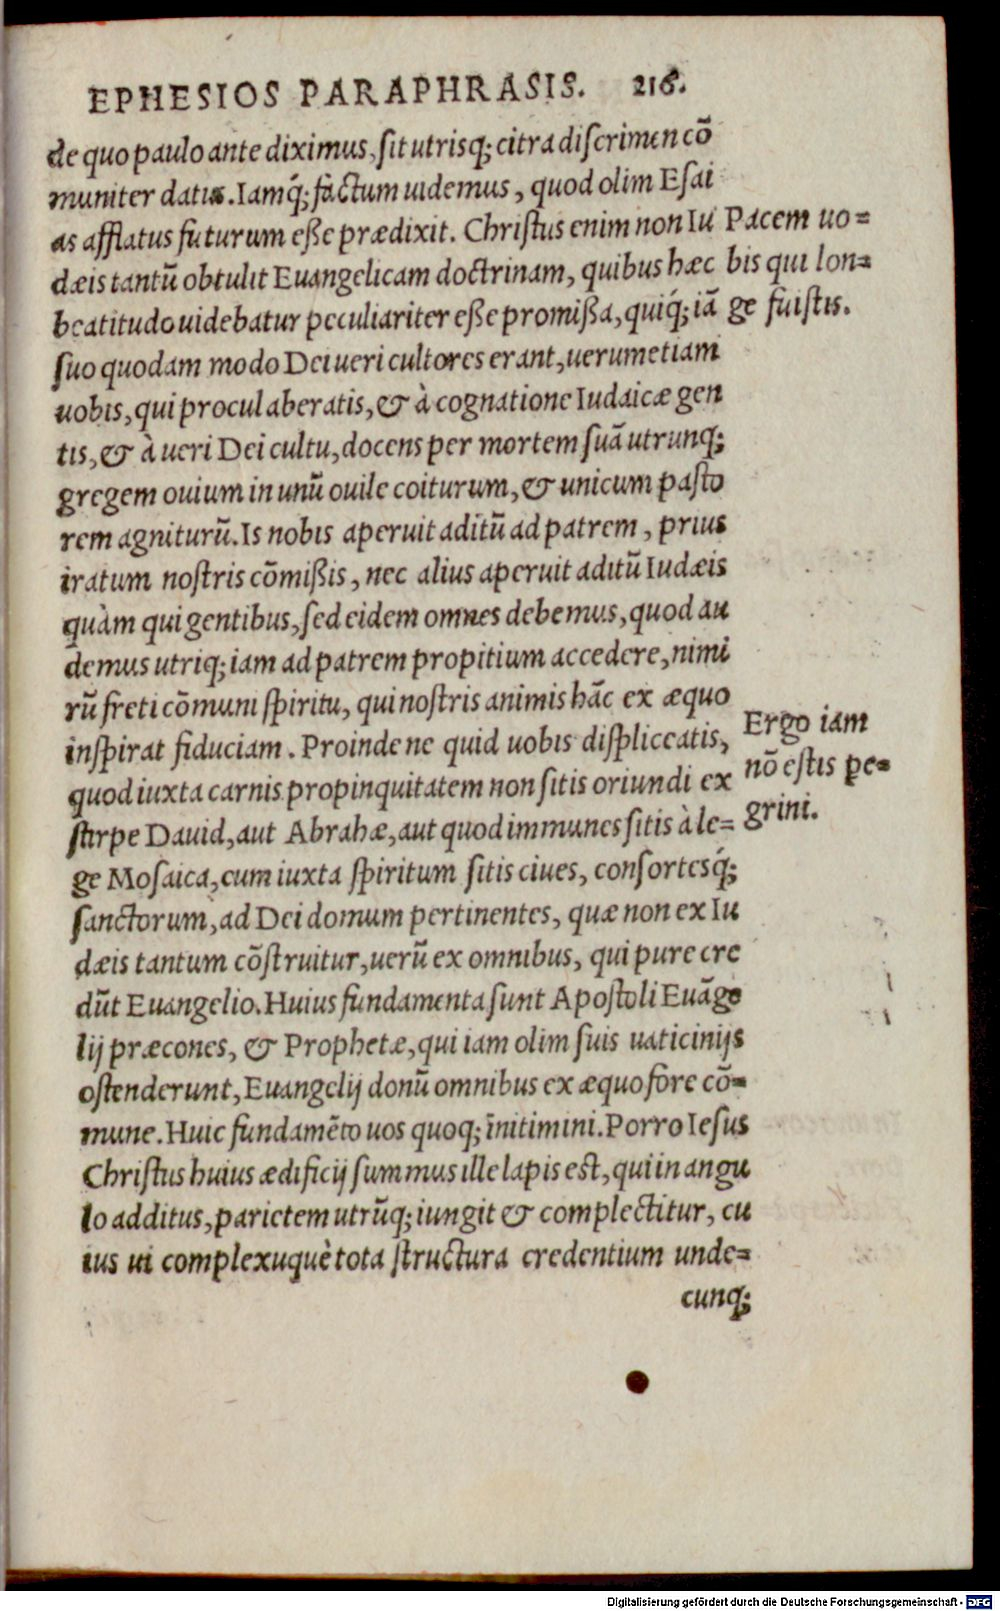 EPHESIOS PARAPHRASIS. 216.
de quo paulo ante diximus, sit utrisq; citra discrimen cõ
muniter datus. Iamq́; factum uidemus, quod olim Esai
as afflatus futurum eße prædixit. Christus enim non Iu
dæis tantũ obtulit Euangelicam doctrinam, quibus hæc
beatitudo uidebatur peculiariter eße promißa, quiq́; iã
Pacem uo=
bis qui lon=
ge fuistis.
suo quodam modo Dei ueri cultores erant, uerumetiam
uobis, qui procul aberatis, & à cognatione Iudaicæ gen
tis, & à ueri Dei cultu, docens per mortem suã utrunq;
gregem ouium in unũ ouile coiturum, & unicum pasto
rem agniturũ. Is nobis aperuit aditũ ad patrem, prius
iratum nostris cõmißis, nec alius aperuit aditũ Iudæis
quàm qui gentibus, sed eidem omnes debemus, quod au
demus utriq; iam ad patrem propitium accedere, nimi
rũ freti cõmuni spiritu, qui nostris animis hãc ex æquo
inspirat fiduciam. Proinde ne quid uobis displiceatis,
quod iuxta carnis propinquitatem non sitis oriundi ex
stirpe Dauid, aut Abrahæ, aut quod immunes sitis à le=
Ergo iam
nõ estis pe=
grini.
ge Mosaica, cum iuxta spiritum sitis ciues, consortesq́;
sanctorum, ad Dei domum pertinentes, quæ non ex Iu
dæis tantum cõstruitur, uerũ ex omnibus, qui pure cre
dũt Euangelio. Huius fundamenta sunt Apostoli Euãge
lij præcones, & Prophetæ, qui iam olim suis uaticinijs
ostenderunt, Euangelij donũ omnibus ex æquo fore cõ=
mune. Huic fundamẽto uos quoq; īnitimini. Porro Iesus
Christus huius ædificij summus ille lapis est, qui in angu
lo additus, parietem utrũq; iungit & complectitur, cu
ius ui complexuquè tota structura credentium unde=
cunq;
Digitalisierung gefördert durch die Deutsche Forschungsgemeinschaft - DFG